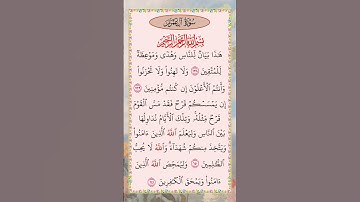 سُورَةُ آلِ عِمْرَانَ
بِسْمِ اللَّهِ الرَّحْمَٰنِ الرَّحِيمِ
هَٰذَا بَيَانٌ لِّلنَّاسِ وَهُدًى وَمَوْعِظَةٌ
لِّلْمُتَّقِينَ ١٣٨ وَلَا تَهِنُوا۟ وَلَا تَحْزَنُوا۟
وَأَنتُمُ ٱلْأَعْلَوْنَ إِن كُنتُم مُّؤْمِنِينَ ١٣٩
إِن يَمْسَسْكُمْ قَرْحٌ فَقَدْ مَسَّ ٱلْقَوْمَ
قَرْحٌ مِّثْلُهُۥ وَتِلْكَ ٱلْأَيَّامُ نُدَاوِلُهَا
بَيْنَ ٱلنَّاسِ وَلِيَعْلَمَ ٱللَّهُ ٱلَّذِينَ ءَامَنُوا۟
وَيَتَّخِذَ مِنكُمْ شُهَدَآءَ وَٱللَّهُ لَا يُحِبُّ
ٱلظَّٰلِمِينَ ١٤٠ وَلِيُمَحِّصَ ٱللَّهُ ٱلَّذِينَ
ءَامَنُوا۟ وَيَمْحَقَ ٱلْكَٰفِرِينَ ١٤١